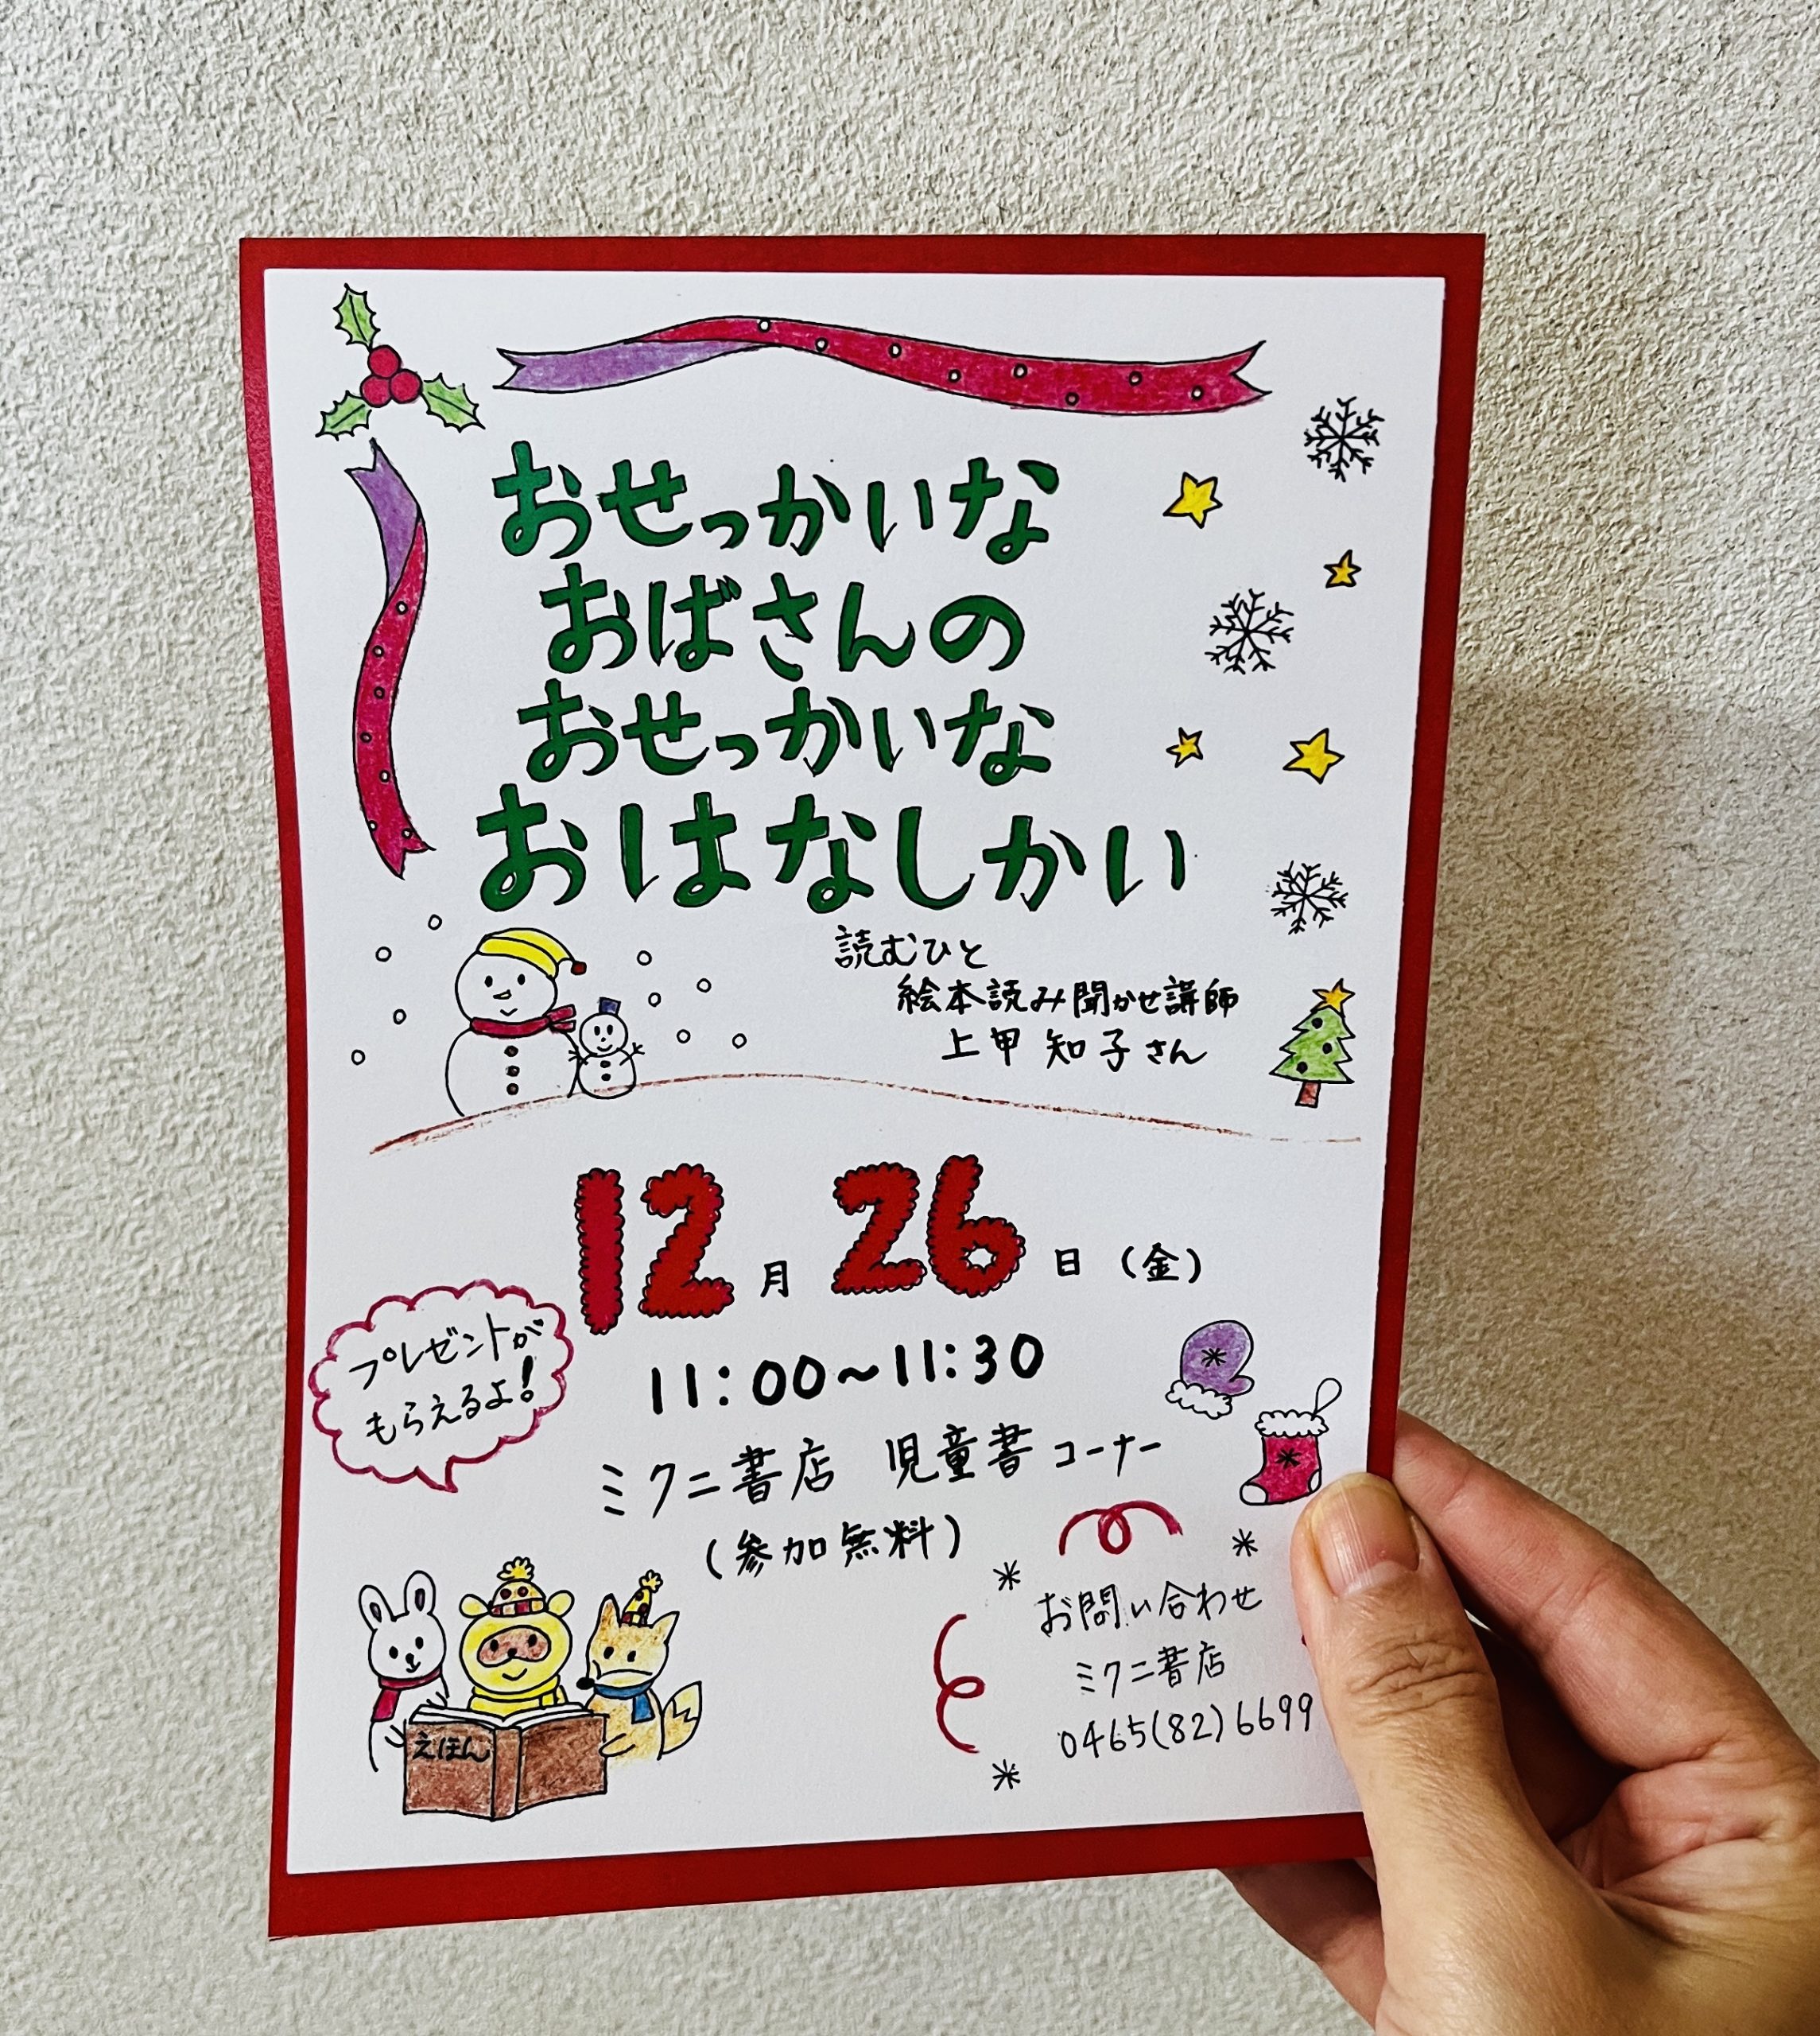 おせっかいな
おばさんの
おせっかいな
おはなしかい
読むひと
絵本読み聞かせ講師
上甲 知子さん
12月 26日 (金)
11:00~11:30
プレゼントが
もらえるよ!
ミクニ書店 児童書コーナー
(参加無料)
お問い合わせ
ミクニ書店
0465(82)6699
えほん